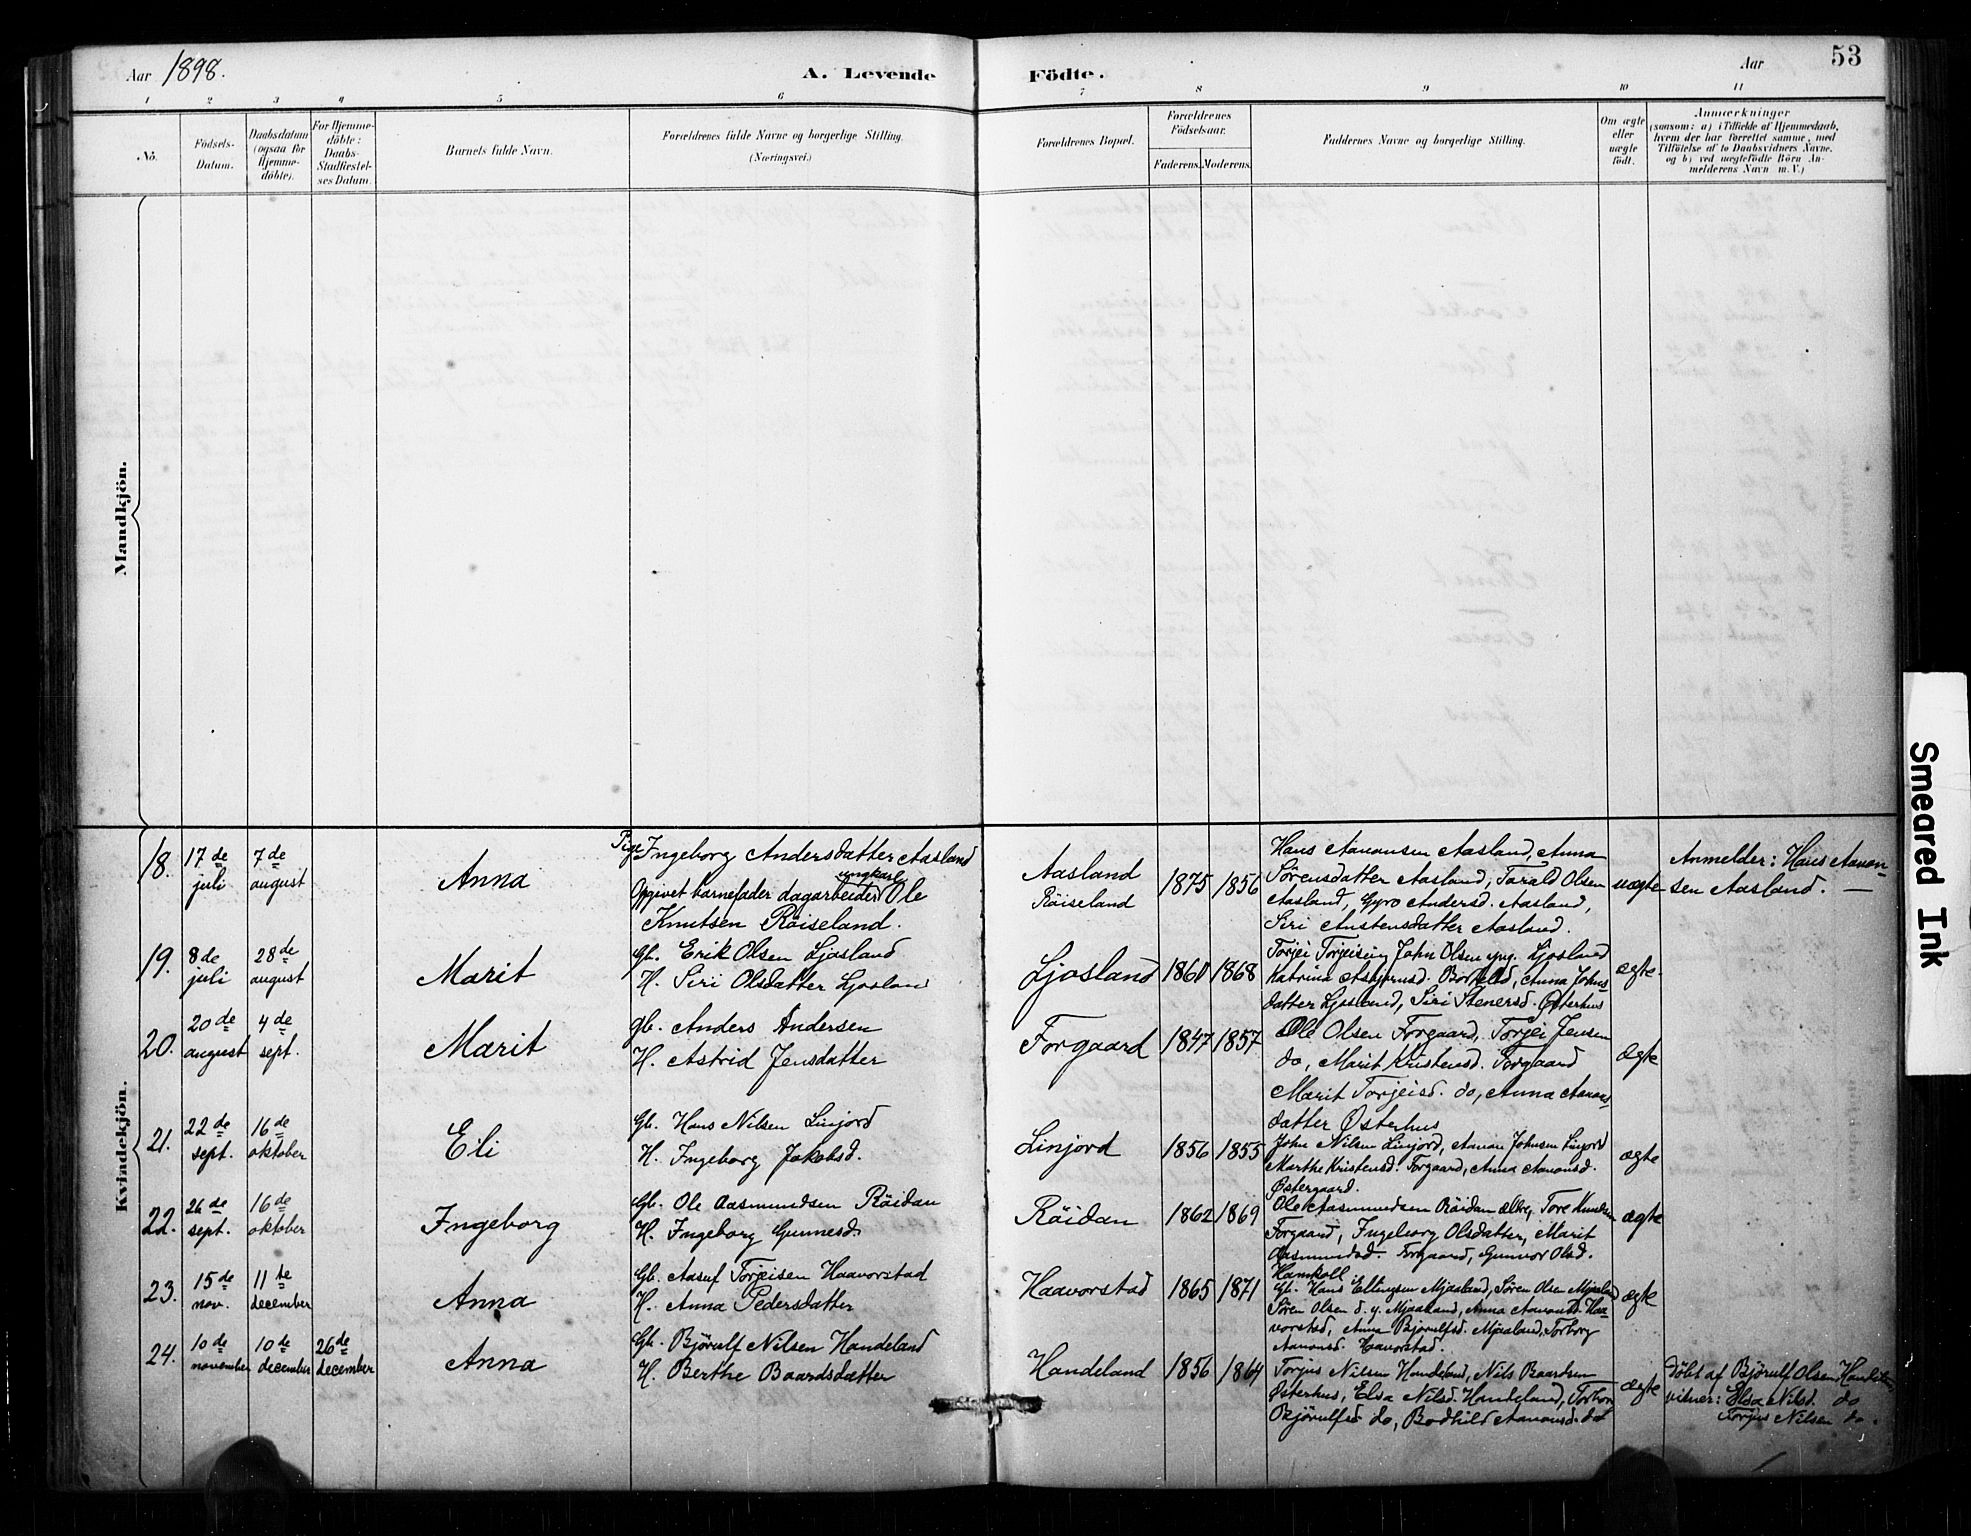 Aar 1898.
A. Levende Födte.
Aar
53
1 2 3 4 5 6 7 8 9 10 11
No.
Födsels-Datum.
Daabsdatum (ogsaa for Hjemme-döbte).
For Hjemme-döbte: Daabs-Stadfæstel-ses Datum.
Barnets fulde Navn.
Forældrenes fulde Navne og borgerlige Stilling. (Næringsvei.)
Forældrenes Bopæl.
Forældrenes Födselsaar.
Faderens. Moderens.
Faddernes Navne og borgerlige Stilling.
Om ægte eller uægte födt.
Anmærkninger
(saasom: a) i Tilfælde af Hjemmedaab,
hvem der har forrettet samme, med
Tilföielse af to Daabsvidners Navne.
og b) ved uægtefödte Börn An-
melderens Navn m. V.)
Mandkjön.
Kvindekjön.
18.
17de juli
7de august
Anna
Pige Ingeborg Andersdatter Aasland
Opgivet barnefader dagarbeider ungkarl Ole
Knutsen Röiseland.
Aasland
Röiseland
1875 1856
Hans Aanonsen Aasland, Anna
Sörensdatter Aasland, Tarald Olsen
Aasland, Gyro Andersd. Aasland,
Siri Austensdatter Aasland.
uægte
Anmelder: Hans Aanon-
sen Aasland. —
19.
8de juli
28de august
Marit
Gb. Erik Olsen Ljosland
H. Siri Olsdatter Ljosland
Ljosland
1860 1868
Torjei Torjeisen, John Olsen yng. Ljosland
Katrine Asbjörnsd. , Anna Johns
datter Ljosland, Siri Stenersd. Østerhus
ægte.
20.
20de august
4de sept.
Marit
gb. Anders Andersen
H. Astrid Jensdatter
Forgaard
1847 1857
Ole Olsen Forgaard, Torjei Jensen
do, Marit Kristensd. Forgaard
Marit Torjeisd. do, Anna Aanons
datter Østerhus
ægte
21.
22de sept.
16de oktober
Eli
Gb. Hans Nilsen Linjord
H. Ingeborg Jakobsd.
Linjord
1856 1855
John Nilsen Linjord, Aanon Johnsen Linjord
Marthe Kristensd. Forgaard, Anna Aanonsd.
Østergaard.
ægte
22.
26de sept.
16de oktober
Ingeborg
Gb. Ole Aasmundsen Röidan
H. Ingeborg Gunnesd.
Röidan
1862 1869
Ole Aasmundsen Röidan ældre, Tore Knudsen
Forgaard, Ingeborg Olsdatter, Marit
Aasmundsd. Forgaard, Gunvor Olsd.
Hamkoll.
ægte
23.
15de nov.
11te december
Anna
Gb. Aasuf Torjeisen Haavorstad
H. Anna Pedersdatter
Haavorstad
1865 1871
Gb. Hans Ellingsen Mjaaland, Sören Olsen Mjaaland
Sören Olsen d. y. Mjaaland, Anna Aanonsd. Haa
vorstad, Anna Bjorulfsd. Mjaaland, Torborg
Aanonsd. Haavorstad.
ægte
24.
10de november
10de december
26de december
Anna
Gb. Björulf Nilsen Handeland
H. Berthe Baardsdatter
Handeland
1856 1864
Torjus Nilsen Handeland, Nils Baardsen
Østerhus, Elsa Nilsd. Handeland, Torbor
Björulfsd do, Bodhild Aanonsd. do
ægte
Döbt af Björulf Olsen Handeland
vidner: Elsa Nilsd. do
Torjus Nilsen do.
Smeared Ink